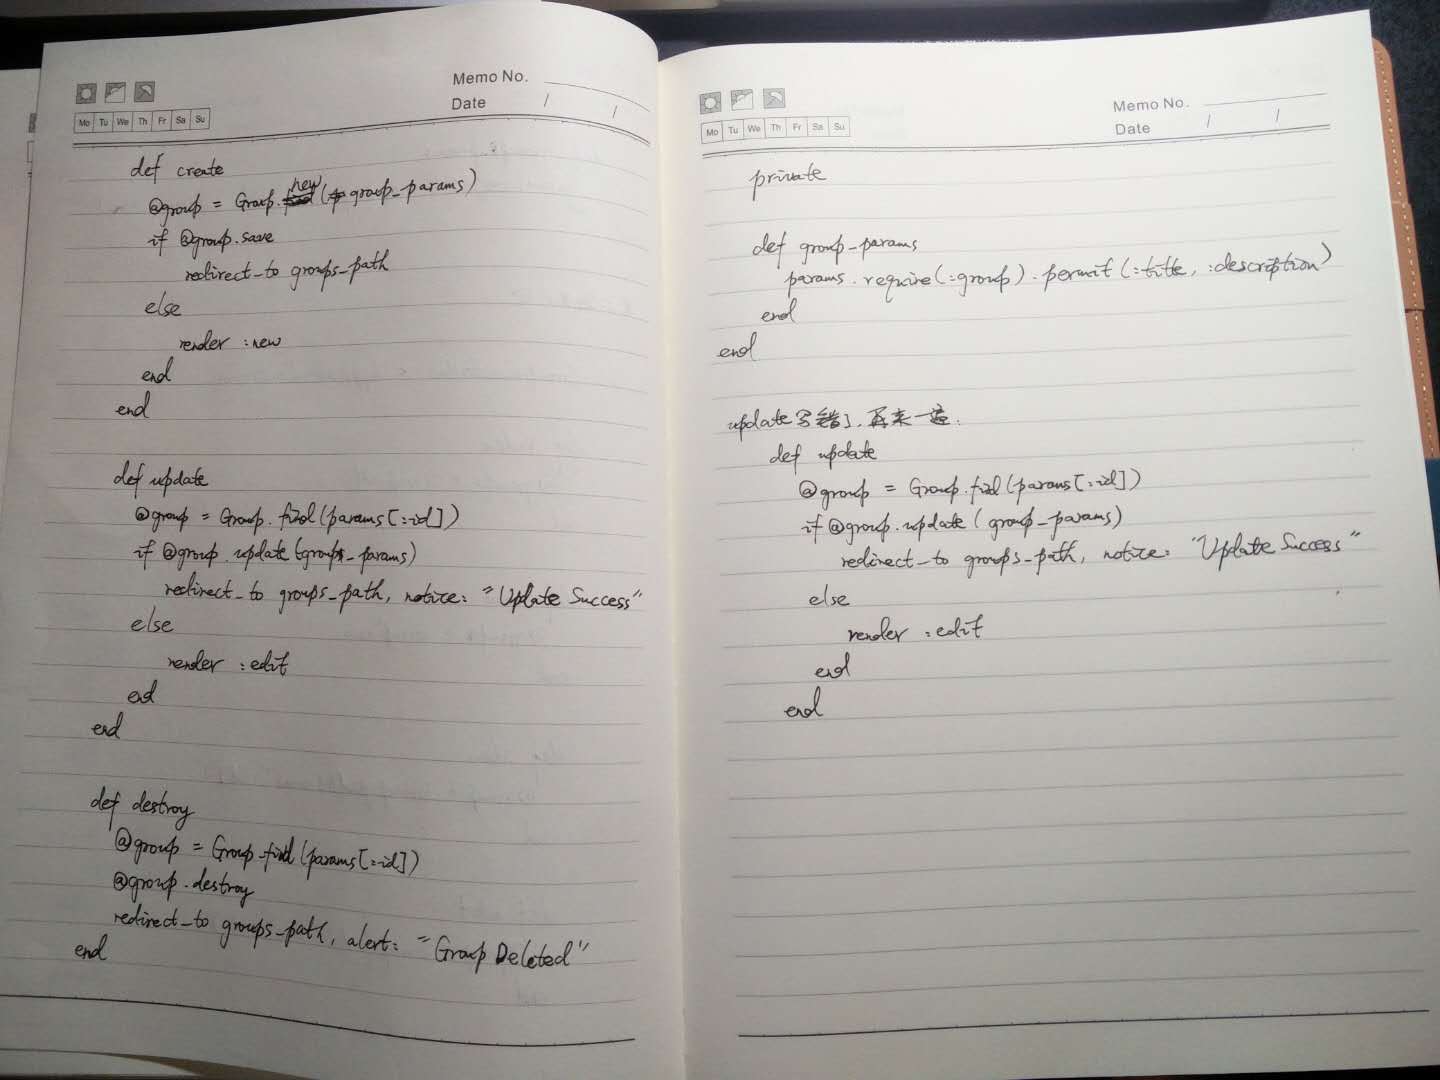 Memo No.
Date / /
Mo Tu We Th Fr Sa Su
def create
@group = Group.new(group_params)
if @group.save
redirect_to groups_path
else
render :new
end
end
def update
@group = Group.find(params[:id])
if @group.update(group_params)
redirect_to groups_path, notice: "Update Success"
else
render :edit
end
end
def destroy
@group = Group.find(params[:id])
@group.destroy
redirect_to groups_path, alert: "Group Deleted"
end
Memo No.
Date / /
Mo Tu We Th Fr Sa Su
private
def group_params
params.require(:group).permit(:title, :description)
end
end
update写错了,再来一遍.
def update
@group = Group.find(params[:id])
if @group.update(group_params)
redirect_to groups_path, notice: "Update Success"
else
render :edit
end
end